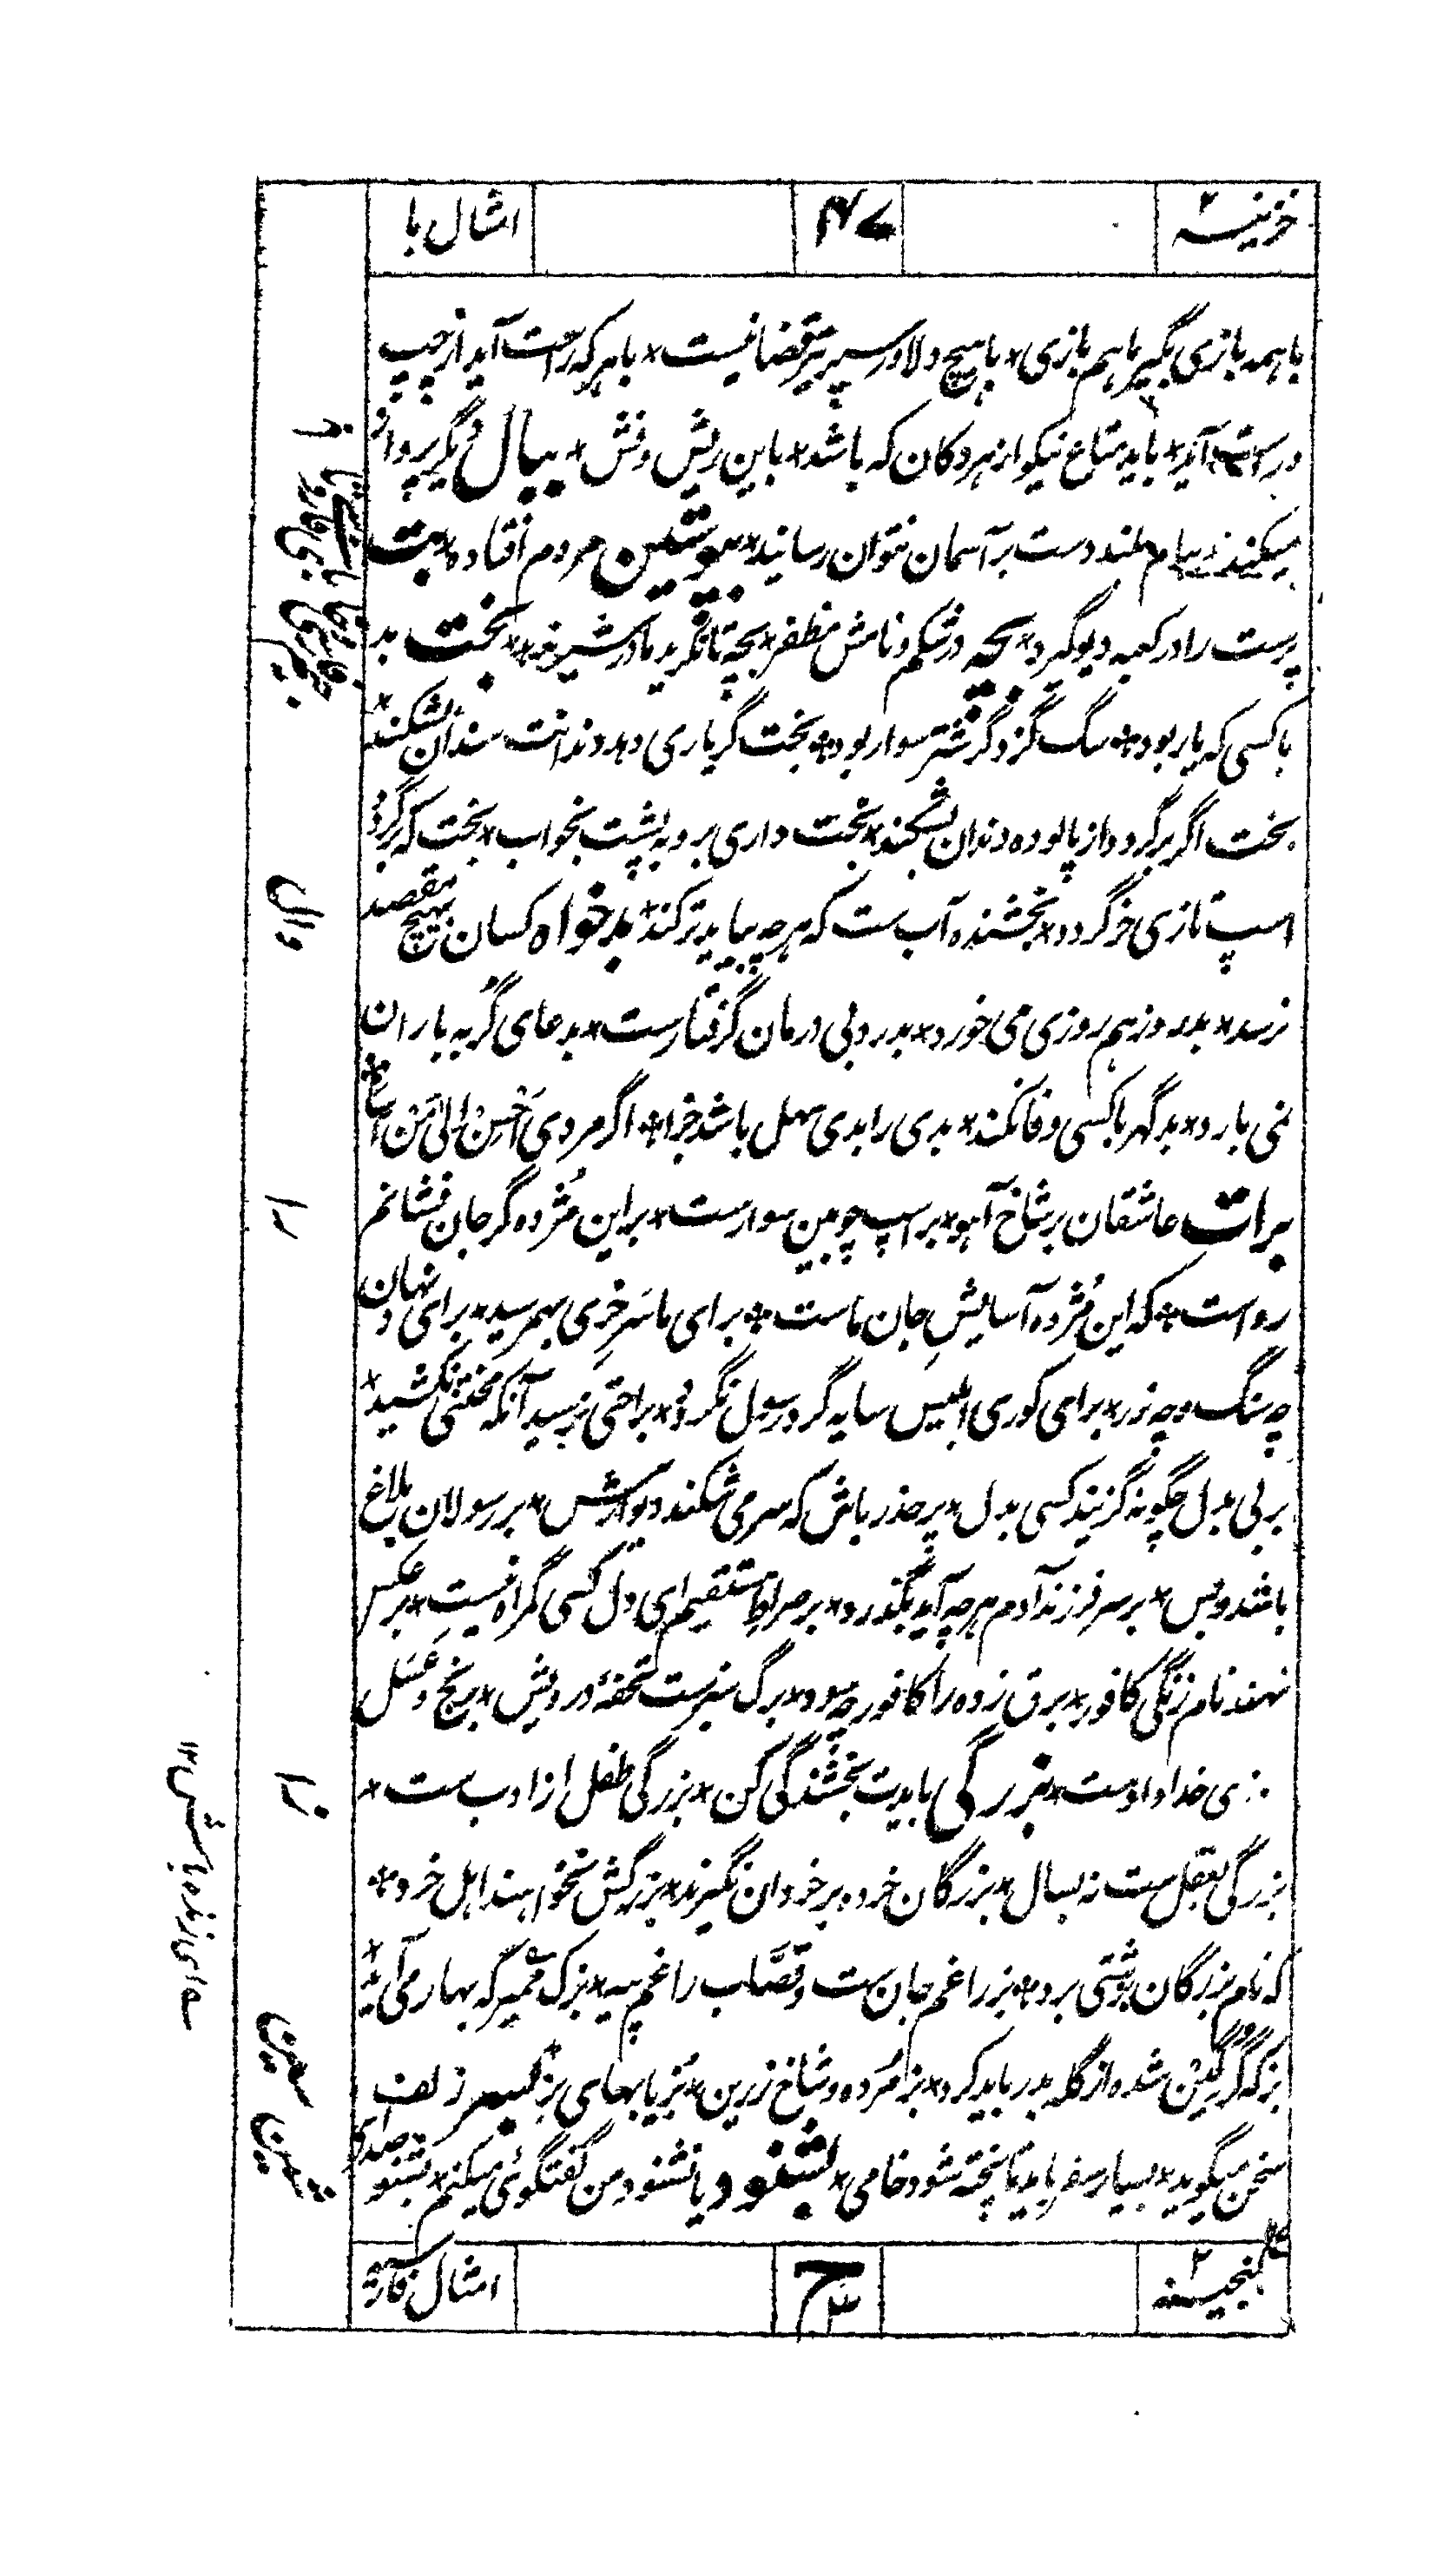 خزینه ۲
امثال با
با همه بازی بگیر با هم بازی * با هیچ دلاور سپر تیر قضا نیست * با هر که راست آید از چپ
درست آید * باید متاع نیکو از هر دکان که باشد * باین ریش و فش * ببال دیگر پرواز
میکند * ببام بلند دست بر آسمان نتوان رسانید * بپوستین مردم افتاده * بت
پرست را در کعبه دیو گیرد * بچه در شکم و نامش مظفر * بچه تا نگرید مادر شیر ندهد * بخت بد
با کسی که یار بود * سگ گزد گر شتر سوار بود * بخت گر یاری دهد دندانت سندان بشکند *
بخت اگر برگردد از پالوده دندان بشکند * بخت داری برو به پشت بخواب * بخت که برگردد
اسپ تازی خر گردد * بخشنده آب ست که هر چه بیابد تر کند * بدخواه کسان بهیچ مقصد
نرسد * بد روز هم روزی می خورد * بدرد بی درمان گرفتارست * بدعای گربه باران
نمی بارد * بدگهر با کسی وفا نکند * بدی را بدی سهل باشد جزا * اگر مردی اَحْسِن اِلیٰ مَن اَسَا *
برات عاشقان بر شاخ آهو * بر اسپ چوبین سوارست * براین مُژده گر جان فشانم
رواست * که این مُژده آسایشِ جان ماست * برای ما سَرِ خَری بهمرسید * برای نهادن
چه سنگ و چه زر * برای کوری ابلیس سایه گرد رسول نگردد * براحتی نرسید آنکه محنتی نکشید *
بر بی بدل چگونه گزیند کسی بدل * پر حذر باش که سر می شکند دیوارش * بر رسولان بلاغ
باشد و بس * بر سر فرزند آدم هر چه آید بگذرد * بر صراط مستقیم ای دل کسی گمراه نیست * برعکس
نهند نام زنگی کافور * برق زده را کافور چه سود * برگ سبزست تحفهٔ درویش * برنج و عسل
روزی خداداد ست * بزرگی بایدت بخشندگی کن * بزرگی طفل از ادب ست *
بزرگی بعقل ست نه بسال * بزرگان خرده بر خردان نگیرند * بزرگش نخوانند اهل خرد *
که نام بزرگان بزشتی برد * بز را غم جان ست و قصّاب را غم پیه * بزک نمیر که بهار می آید *
بز که گرگین شده از گله بدر باید کرد * بز مُرده و شاخ زرین * بُز یا بهای بز * بسر زلف
سخن میگوید * بسیار سفر باید تا پخته شود خامی * بشنود یا نشنود من گفتگوئی میکنم * بشنو صدای
دال
را
زا
سین
شین
ای زنده باش ۱۲
گنجینه ۲
ح ۳
امثال فارسی